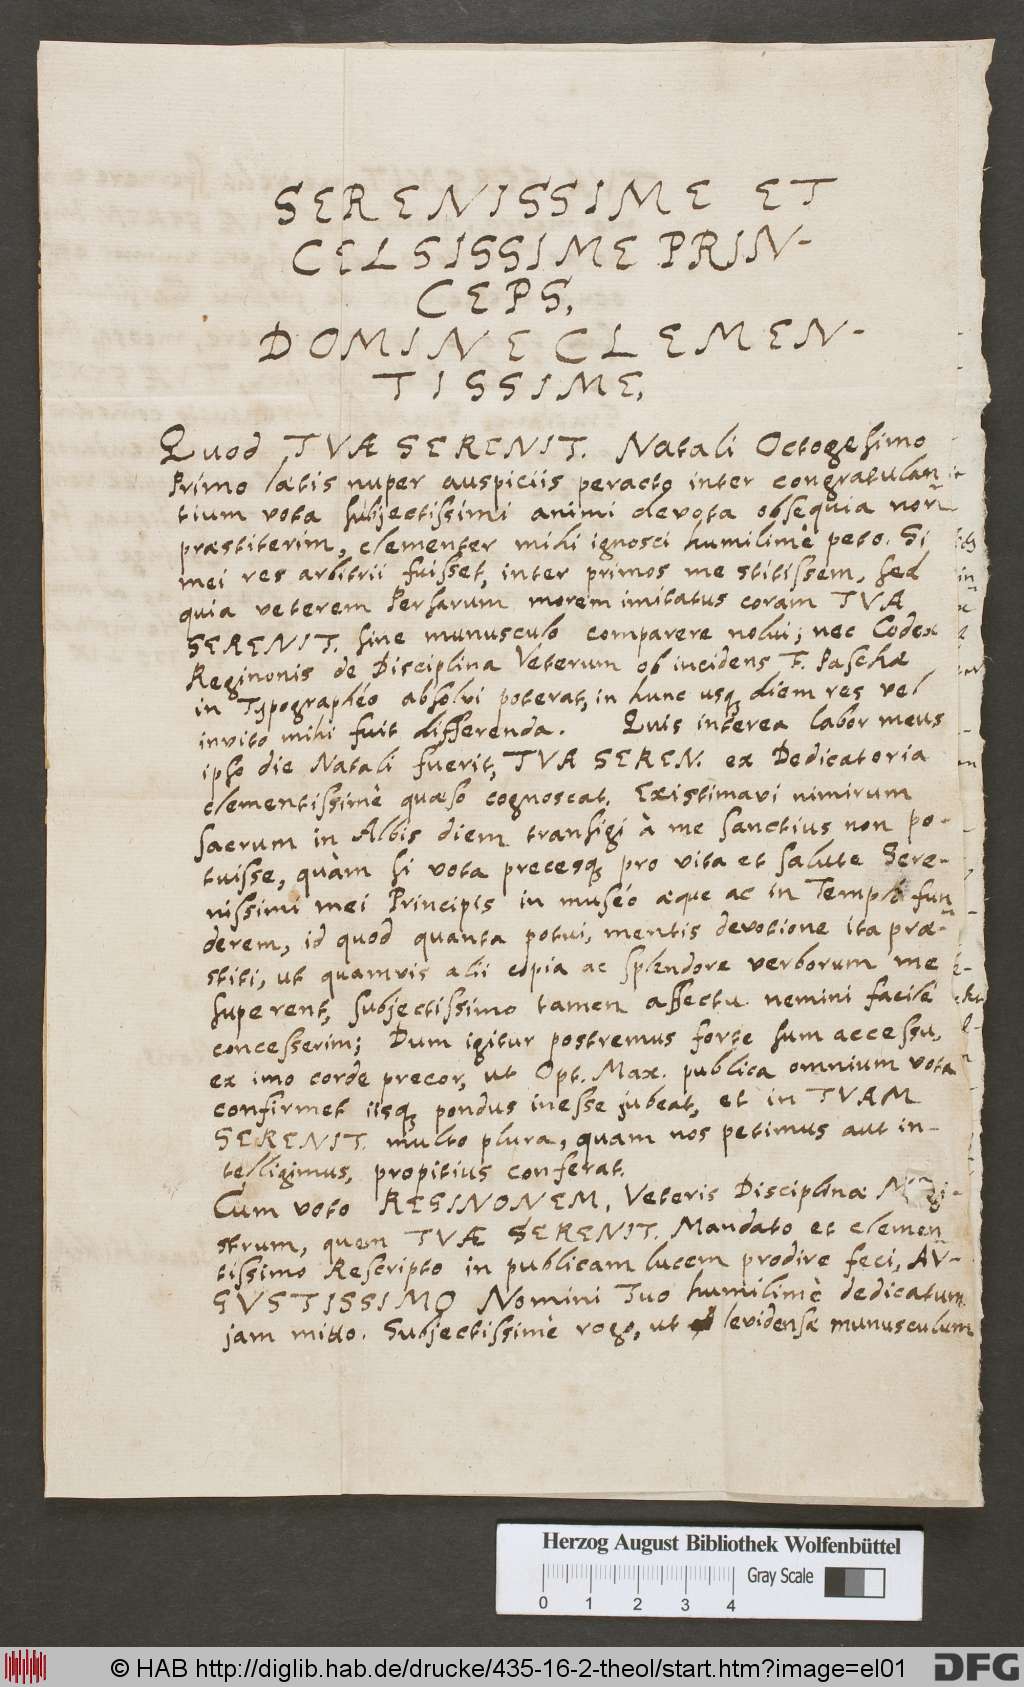 SERENISSIME ET
CELSISSIME PRIN-
CEPS,
DOMINE CLEMEN-
TISSIME,
Quod TVÆ SERENIT. Natali Octogesimo
Primo lætis nuper auspiciis peracto inter congratulan
tium vota subjectissimi animi devota obsequia non
præstiterim, clementer mihi ignosci humilimè peto. Si
mei res arbitrii fuisset, inter primos me stitissem, sed
quia veterem Persarum morem imitatus coram TVA
SERENIT. sine munusculo comparere nolui; nec Codex
Reginonis de Disciplina Veterum ob incidens F. Paschæ
in Typographéo absolvi poterat, in hunc usq; diem res vel
invito mihi fuit differenda. Quis interea labor meus
ipso die Natali fuerit, TVA SEREN. ex Dedicatoria
clementissimè quæso cognoscat. Existimavi nimirum
sacrum in Albis diem transigi à me sanctius non po-
tuisse, quàm si vota precesq; pro vita et salute Sere-
nissimi mei Principis in muséo æque ac in Templo fun
derem, id quod quanta potui, mentis devotione ita præ-
stiti, ut quamvis alii copia ac splendore verborum me
superent, subjectissimo tamen affectu nemini facilè
concesserim; Dum igitur postremus forte sum accessu,
ex imo corde precor, ut Opt. Max. publica omnium vota
confirmet iisq; pondus inesse jubeat, et in TVAM
SERENIT. multo plura, quam nos petimus aut in-
telligimus, propitius conferat.
Cum voto REGINONEM, Veteris Disciplinæ Magi-
strum, quem TVÆ SERENIT. Mandato et clemen
tissimo Rescripto in publicam lucem prodire feci, AV-
GVSTISSIMO Nomini Tuo humilimè dedicatum
jam mitto. Subjectissimè rogo, ut levidensæ munusculum
Herzog August Bibliothek Wolfenbüttel
Gray Scale
0 1 2 3 4
© HAB http://diglib.hab.de/drucke/435-16-2-theol/start.htm?image=el01
DFG